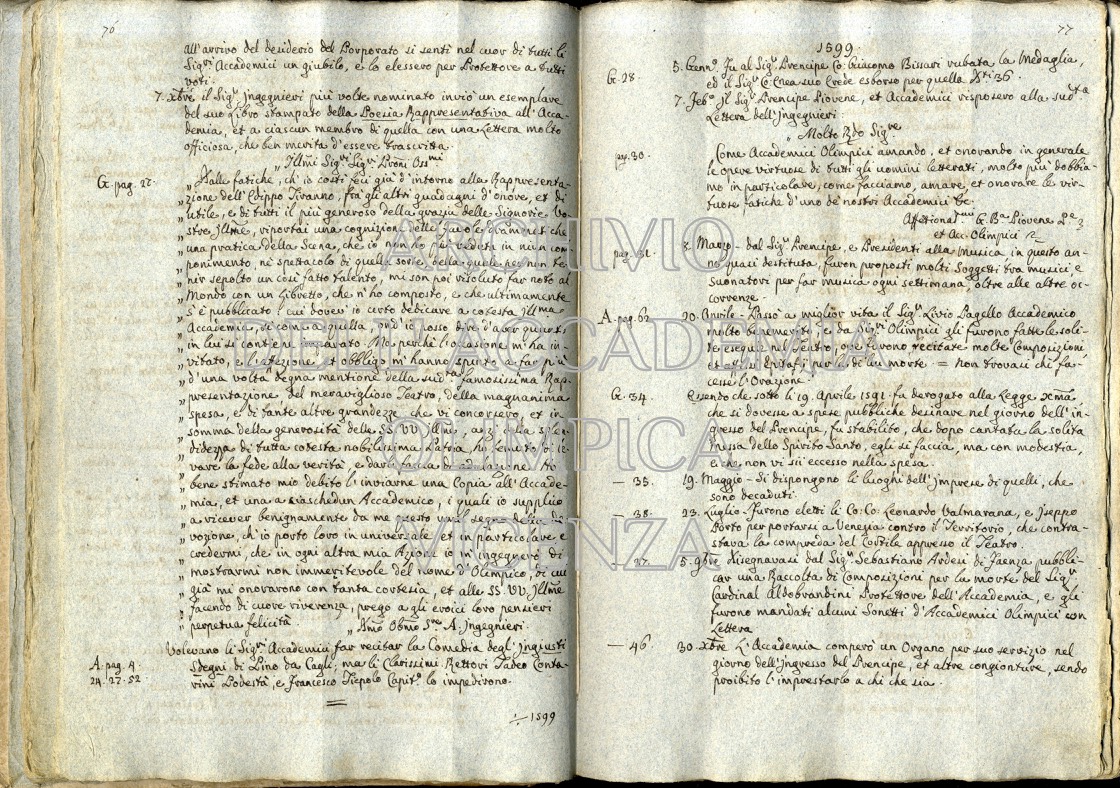 76
all'arrivo del desiderio del Porporato si sentì nel cuor di tutti li
Sig.ri Accademici un giubilo, e lo elessero per Protettore a tutti
voti.
7. Xbre il Sig.r Jngegnieri più volte nominato inviò un esemplare
del suo Libro stampato della Poesia Rappresentativa all'Acca-
demia, et a ciascun membro di quella con una Lettera molto
officiosa, che ben merita d'essere trascritta.
„ Jllmi Sig.ri Sig.ri Proni Oss.mi
G. pag. 27.
„ Dalle fatiche, ch'io costì feci già d'intorno alla Rappresenta-
„ zione dell'Edippo Tiranno, frà gli altri guadagni d'onore, et di
„ utile, e di tutti il più generoso della grazia delle Signorie Vo-
„ stre Jllme, riportai una cognizione delle favole dramatiche
„ una pratica della Scena, che io non hò più veduta in niun com-
„ ponimento, nè spettacolo di quella sorte, della quale per non te-
„ nir sepolto un così fatto talento, mi son poi risoluto far noto al
„ Mondo con un libretto, che n'hò composto, e che ultimamente
„ s'è pubblicato: cui dovev'io certo dedicare a cotesta Jllma
„ Accademia, sì come a quella, ond'io posso dire d'aver quasi
„ in lui si contiene imparato. Ma perchè l'occasione m'ha in-
„ vitato, e l'afezione, et obbligo m'hanno spinto a far più
„ d'una volta degna mentione della sud.ta famosissima Rap-
„ presentazione, del meraviglioso Teatro, della magnanima
„ spesa, e di tante altre grandezze che vi concorsero, et in
„ somma della generosità delle SS. VV. Jllme, anzi della splen-
„ didezza di tutta cotesta nobilissima Patria, hò temuto di le-
„ vare la fede alla verità, e darli faccia di adulazione. Hò
„ bene stimato mio debito l'inviarne una Copia all'Accade-
„ mia, et una a ciaschedun Accademico, i quali io supplico
„ a ricever benignamente da me questo umil segno della di-
„ vozione, ch'io porto loro in universale, et in particolare, e
„ credermi, che in ogni altra mia Azione io m'ingegnerò di
„ mostrarmi non immeritevole del nome d'Olimpico, di cui
„ già mi onorarono con tanta cortesia, et alle SS. VV. Jllme
„ facendo di cuore riverenza, prego a gli eroici loro pensieri
„ perpetua felicità.
„ Affmo Obmo S.re A. Jngegnieri.
Volevano li Sig.ri Accademici far recitar la Comedia degl'Jngiusti
A. pag. 4.
24. 27. 52
Sdegni di Pino da Cagli, ma li Clarissimi Rettori Tadeo Conta-
rini Podestà, e Francesco Tiepolo Capit.o lo impedirono.
1599
77
1599.
G. 28.
5. Genn.o Fu al Sig.r Prencipe Co: Giacomo Bissari rubata la Medaglia,
ed il Sig.r Co: Enea suo Erede esborsò per quella Xti 36.
7. Feb.o Jl Sig.r Prencipe Piovene, et Accademici risposero alla sud.ta
Lettera dell'Jngegnieri.
„ Molto Rdo Sig.re
pag. 30.
Come Accademici Olimpici amando, et onorando in generale
le opere virtuose di tutti gli uomini letterati, molto più dobbia-
mo in particolare, come facciamo, amare, et onorare le vir-
tuose fatiche d'uno de' nostri Accademici &c.
Affetionat.mi G. B.a Piovene P.e
et Acc. Olimpici
pag. 31.
3. Marzo - dal Sig.r Prencipe, e Presidenti alla Musica, in questo an-
no quasi destituta, furon proposti molti Soggetti tra musici, e
Suonatori per far musica ogni settimana, oltre alle altre oc-
correnze.
A. pag. 62.
20. Aprile - Passò a miglior vita il Sig.r Livio Pagello Accademico
molto benemerito, e da Sig.ri Olimpici gli furono fatte le soli-
te esequie nel Teatro, ove furono recitate molte Composizioni
et affissi Epitafi per lode di un morto. = non trovasi chi fa-
cesse l'Orazione.
G. 34.
Essendo che sotto li 19. Aprile 1591. fu derogato alla Legge Xma
che si dovesse a spese pubbliche desinare nel giorno dell'in-
gresso del Prencipe, fu stabilito, che dopo cantata la solita
Messa dello Spirito Santo, egli si faccia, ma con modestia,
e che non vi sii eccesso nella spesa.
— 35.
19. Maggio - Si dispongono li luoghi dell'Jmprese di quelli, che
sono decaduti.
— 38.
23. Luglio - Furono eletti li Co: Co: Leonardo Valmarana, e Jseppo
Porto per portarsi a Venezia contro il Territorio, che contra-
stava la compreda del Cortile appresso il Teatro.
27.
5. 9bre Disegnavasi dal Sig.r Sebastiano Ardesi di Faenza pubbli-
car una Raccolta di Composizioni per la morte del Sig.r
Cardinal Aldobrandini Protettore dell'Accademia, e gli
furono mandati alcuni Sonetti d'Accademici Olimpici con
Lettera
— 46
30. Xbre L'Accademia comperò un Organo per suo servizio nel
giorno dell'Jngresso del Prencipe, et altre congionture, sendo
proibito l'imprestarlo a chi che sia.
ARCHIVIO
DELL'ACCADEMIA
OLIMPICA
VICENZA